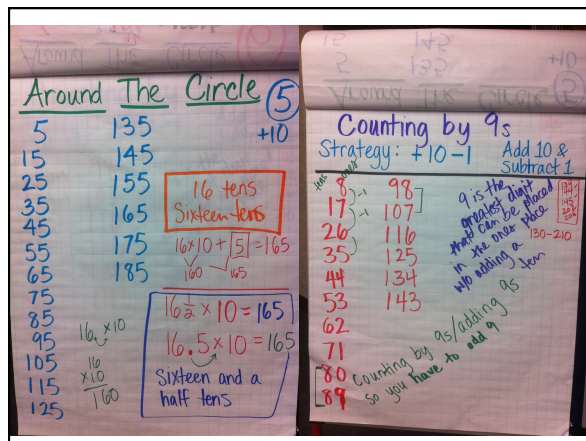 Around The Circle
5
+10
5
15
25
35
45
55
65
75
85
95
105
115
125
135
145
155
165
175
185
16 tens
Sixteen tens
16×10 + 5 = 165
160
165
16 1/2 × 10 = 165
16.5 × 10 = 165
Sixteen and a
half tens
16. ×10
16
×10
160
Counting by 9s
Strategy: +10-1
Add 10 &
Subtract 1
tens
ones
8
17
26
35
44
53
62
71
80
89
-1
-1
98
107
116
125
134
143
9 is the
greatest digit
that can be placed
in the ones place
w/o adding a
ten
130-210
Counting by 9s/adding 9s
so you have to add 9